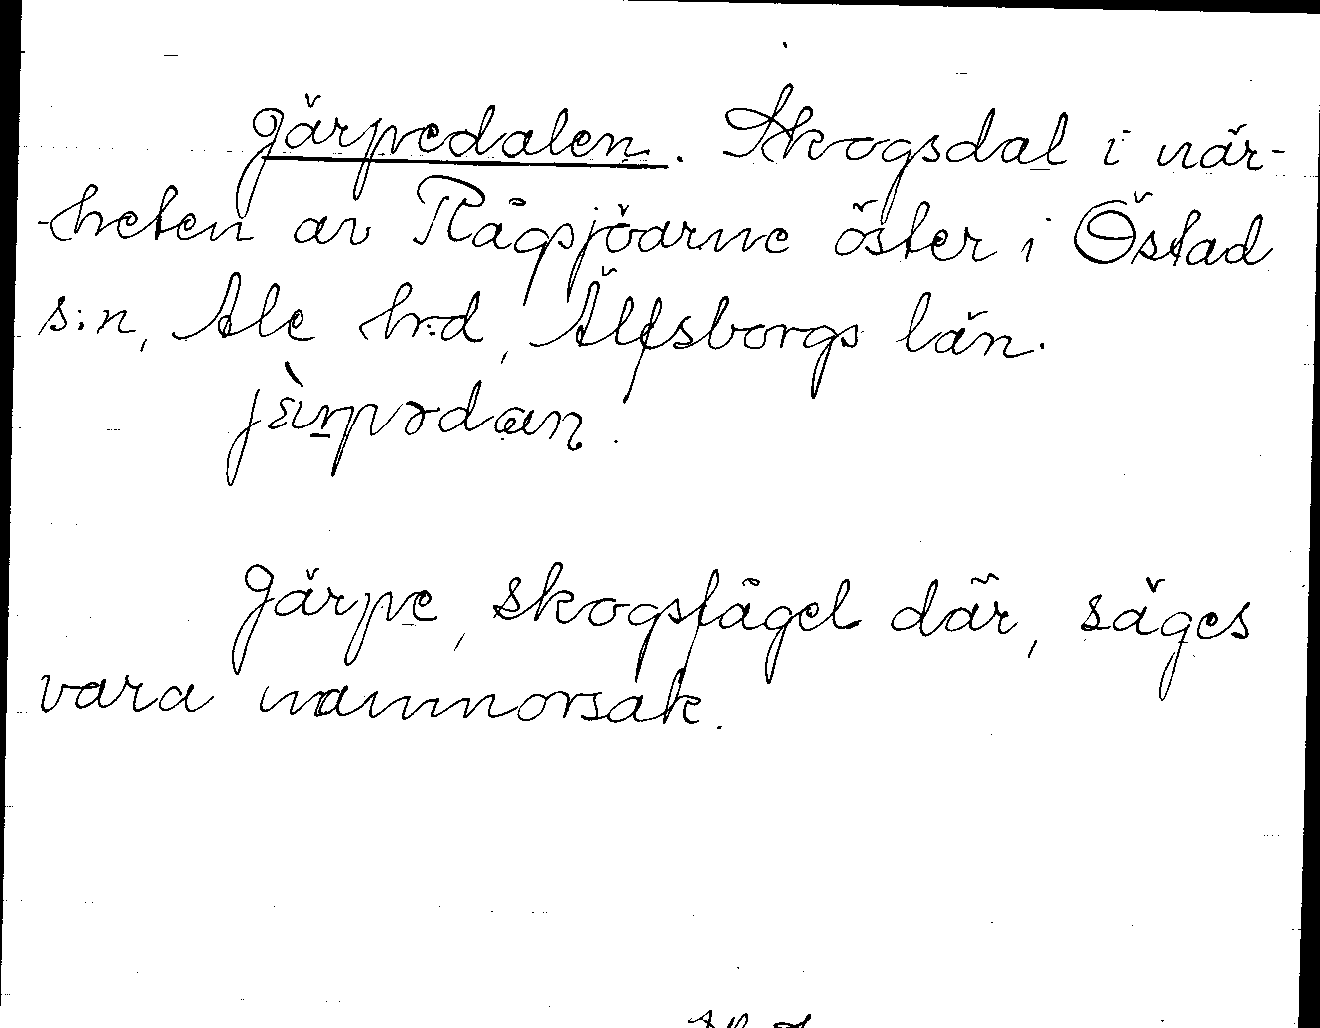 Gärpedalen. Skogsdal i när-
heten av Rågsjöarne öster i Östad
s:n, Ale h:d, Älfsborgs län.
Gärpe, skogsfågel där, säges
vara namnorsak.